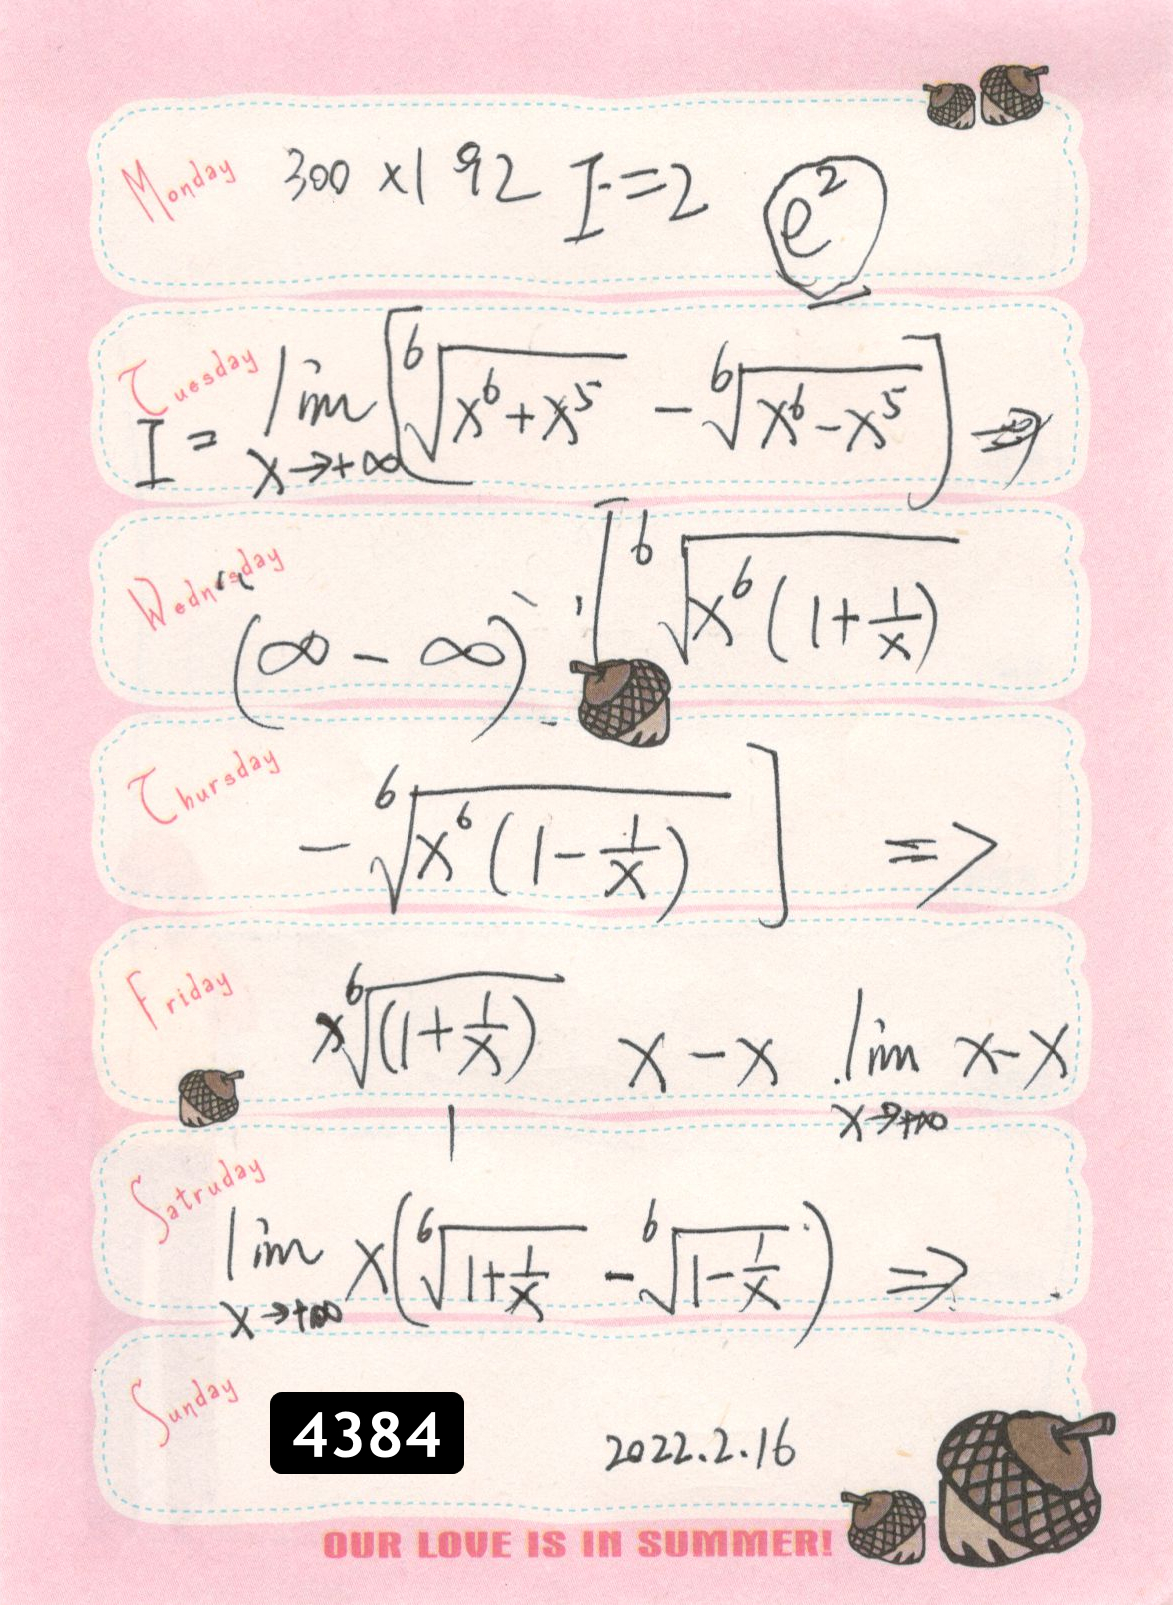 Monday 300 x 192 I = 2 e²
Tuesday
I = lim x→+∞ [ ⁶√(x⁶+x⁵) − ⁶√(x⁶−x⁵) ] ⇒
Wednesday
(∞ − ∞) [ ⁶√(x⁶(1+1/x))
Thursday
− ⁶√(x⁶(1−1/x)) ] =>
Friday
x ⁶√((1+1/x)) x − x lim x→+∞ x−x
1
Satruday
lim x→+∞ x( ⁶√(1+1/x) − ⁶√(1−1/x) ) ⇒
Sunday
4384 2022.2.16
OUR LOVE IS IN SUMMER!